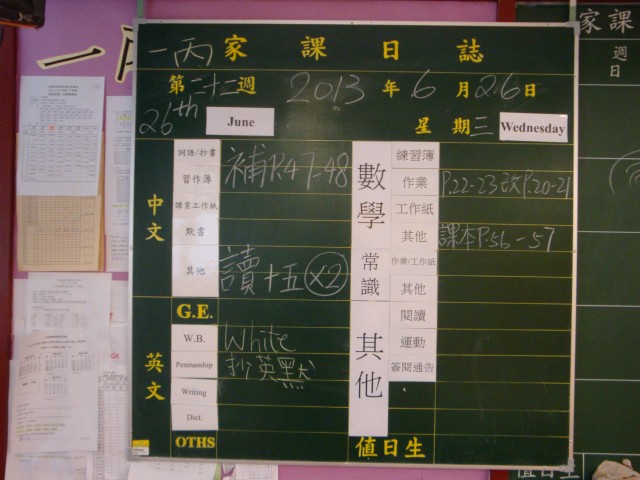 一丙
一丙 家課日誌
第二十二週 2013年6月26日
26th June 星期三 Wednesday
中文
詞語/抄書
習作簿 補P.47-48
課室工作紙
默書
其他 讀十五×2
G.E.
英文
W.B. White
Penmanship 抄英默
Writing
Dict.
OTHS
數學
練習簿
作業 P.22-23 改P.20-21
工作紙
其他 課本P.56-57
常識
作業/工作紙
其他
其他
閱讀
運動
簽閱通告
值日生
家課
週
日
值日生